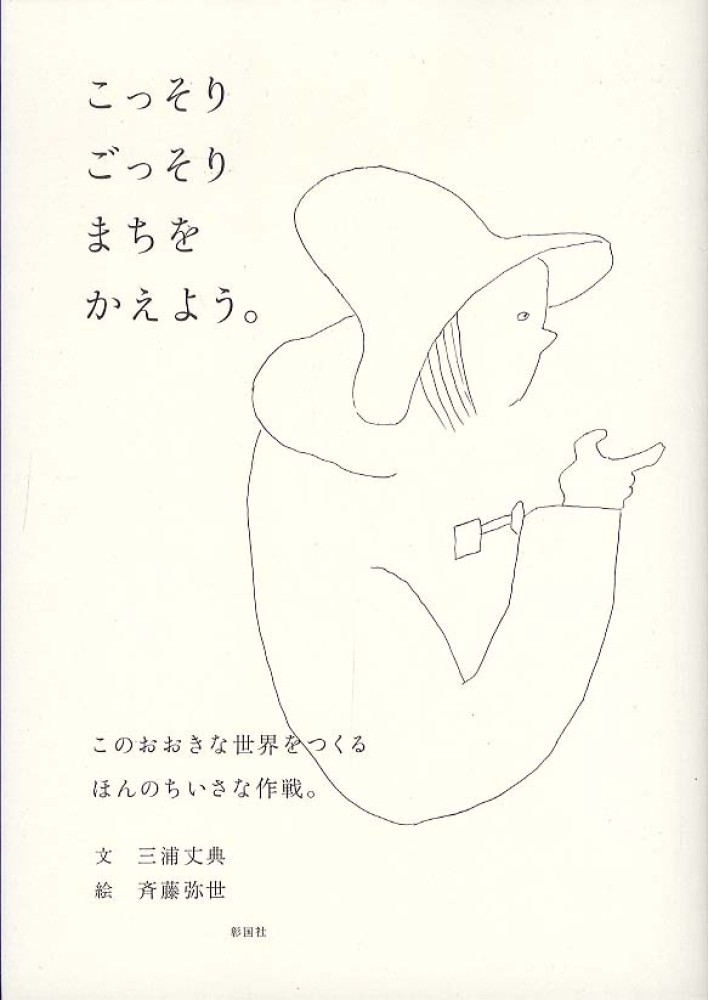 こっそり
ごっそり
まちを
かえよう。
このおおきな世界をつくる
ほんのちいさな作戦。
文　三浦丈典
絵　斉藤弥世
彰国社